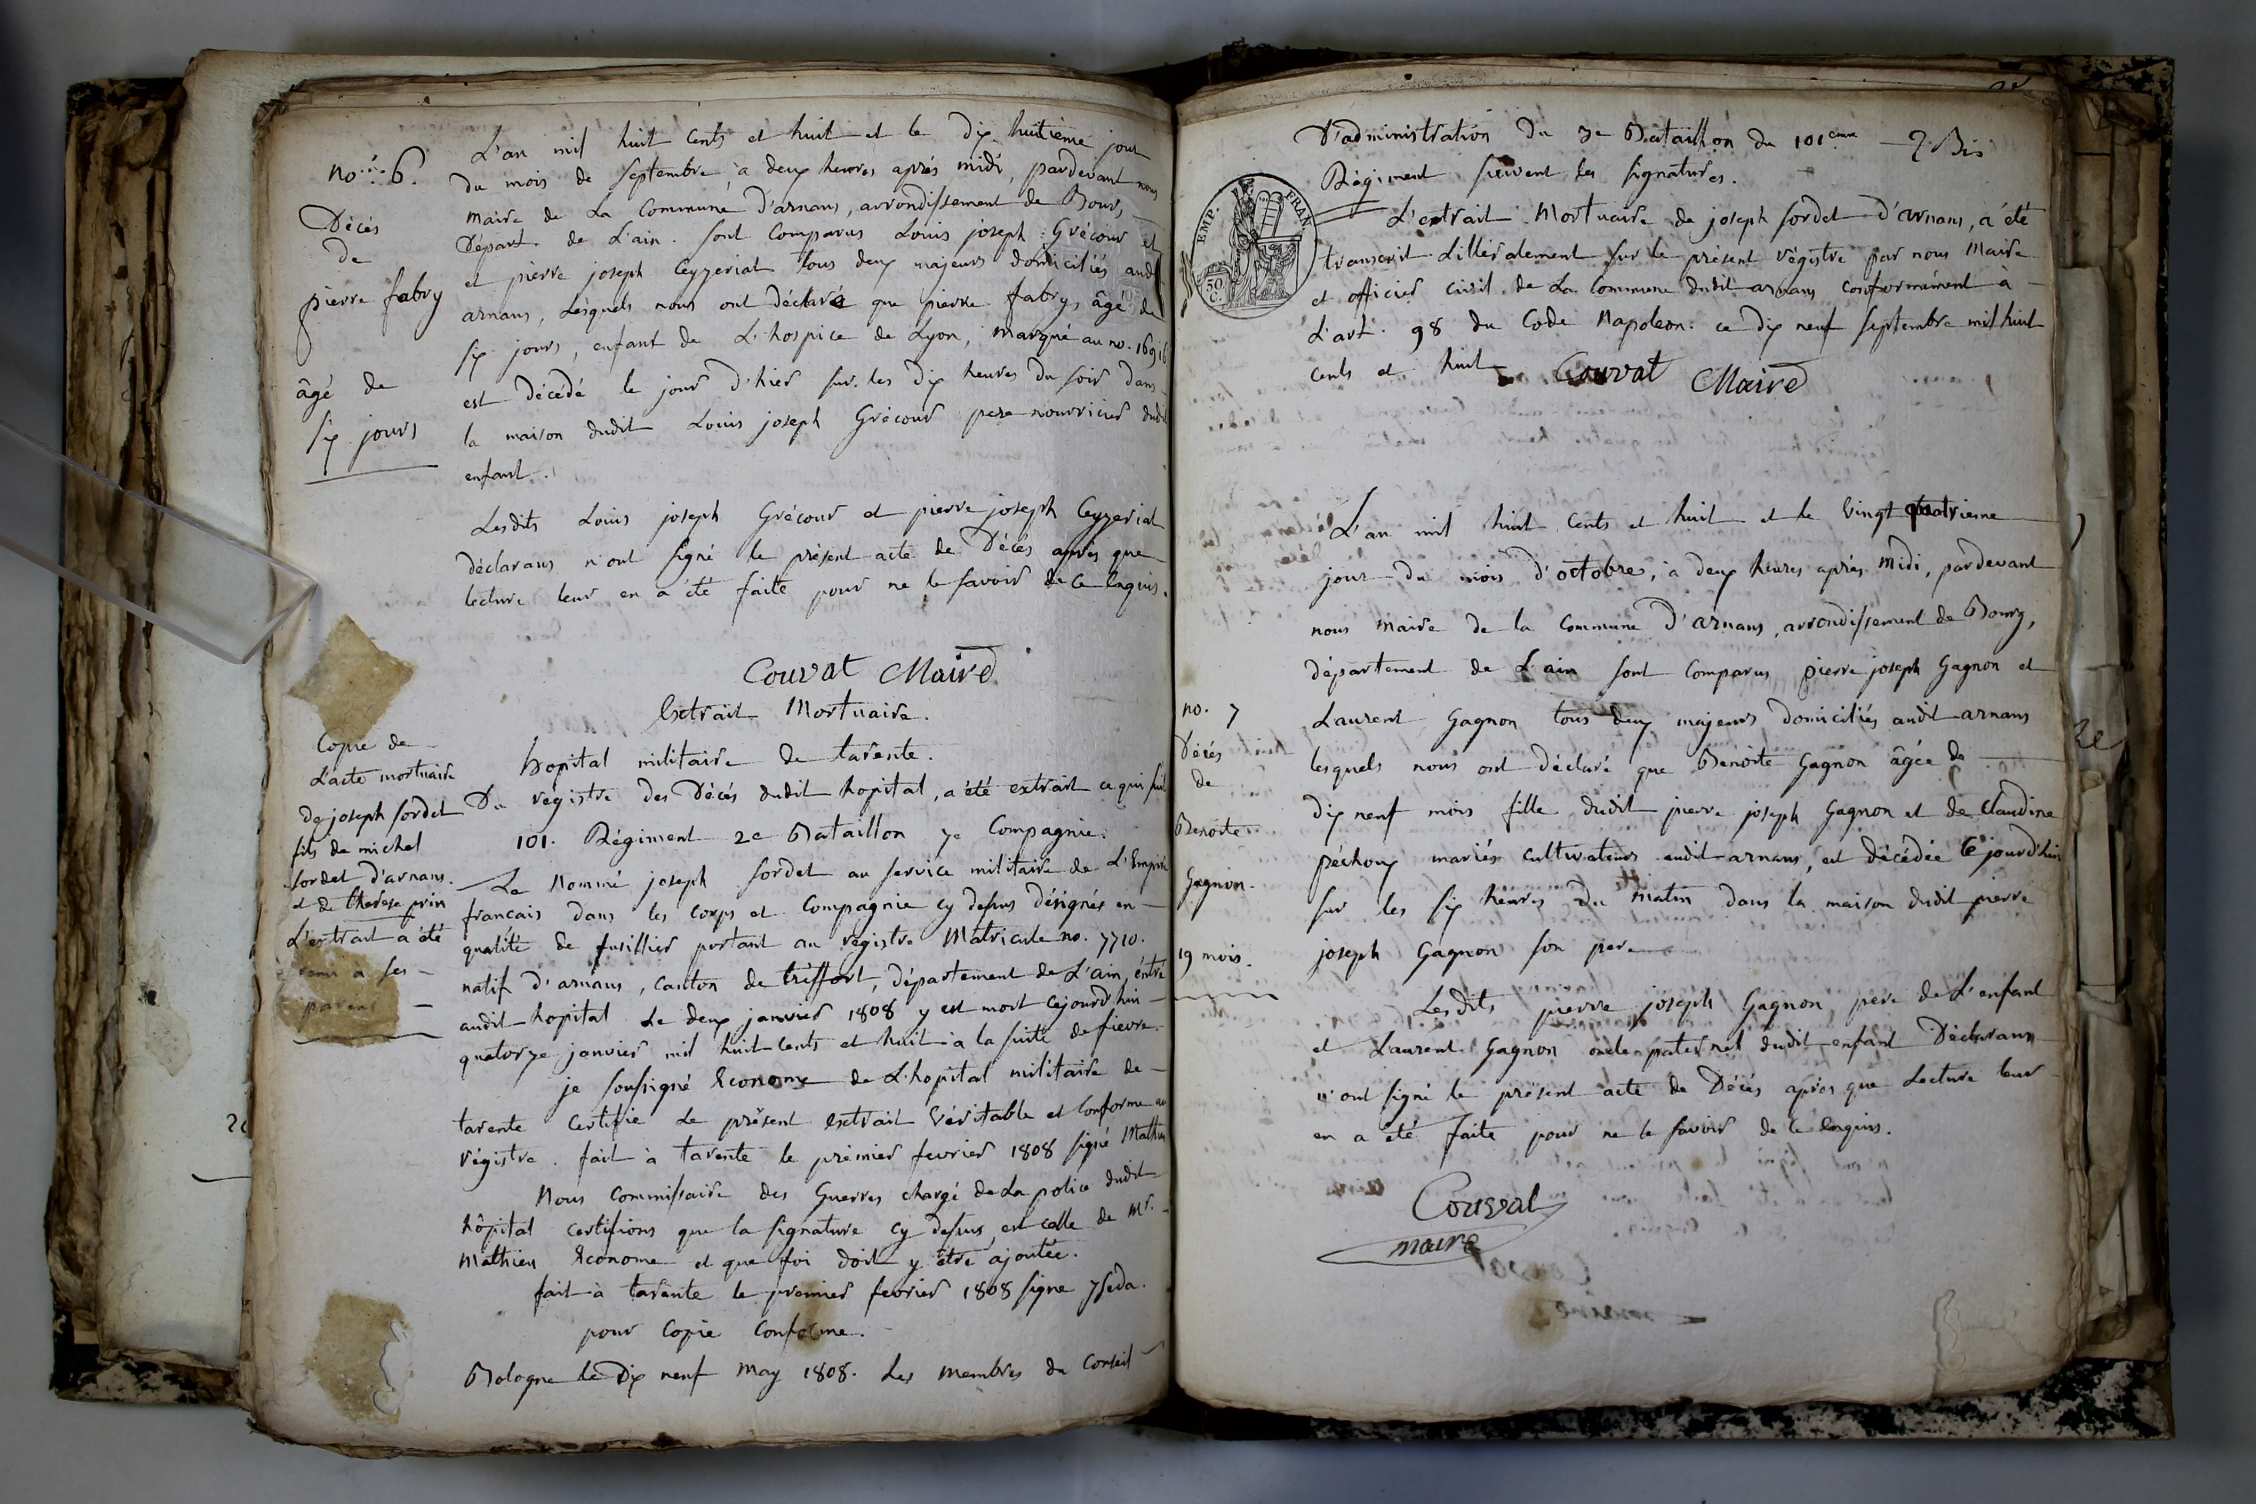 no. 6.
Décès
de
pierre fabry
âgé de
six jours
L'an mil huit cents et huit et le dix huitième jour
du mois de septembre, à deux heures après midi, pardevant nous
maire de La Commune d'arnans, arrondissement de Bourg,
Départ. de L'ain. sont Comparus Louis joseph Grécour et
et pierre joseph Ceyzeriat tous deux majeurs domiciliés audt
arnans, Lesquels nous ont déclaré que pierre fabry, âgé de
six jours, enfant de L'hospice de Lyon, marqué au no. 16916
est Décédé le jour d'hier sur les dix heures du soir dans
la maison dudit Louis joseph Grécour pere nourricier dudit
enfant.
Lesdits Louis joseph Grécour et pierre joseph Ceyzeriat
déclarans n'ont signé le présent acte de Décès après que
lecture leur en a été faite pour ne le savoir de ce Enquis.
Couvat Maire
Extrait Mortuaire.
Copie de
L'acte mortuaire
de joseph sordet
fils de michel
sordet d'arnans.
et de therese prin
L'extrait a été
a ses
parens
hopital militaire de tarente.
Du régistre des Décès dudit hopital, a été extrait ce qui suit
101. Régiment 2e Bataillon 7e Compagnie.
Le Nommé joseph sordet au service militaire de L'Empire
francais dans les corps et Compagnie cy dessus désignés en
qualité de fusillier portant au régistre Matricule no. 7710.
natif d'arnans, canton de tréffort, département de L'ain, éntré
audit hopital Le deux janvier 1808 y est mort cejourd'hui
quatorze janvier mil huit Cents et huit à la suite de fievre.
je soussigné Econome de L'hopital militaire de
tarente Certifie Le présent Extrait Véritable et Conforme au
régistre. fait à tarente le prémier fevrier 1808 signé Mathieu
Nous Commissaire des Guerres chargé de La police dudit
hôpital certifions que la signature cy dessus, est celle de Mr.
Mathieu Econome et que foi doit y être ajoutée.
fait à tarente le premier fevrier 1808 signé
pour Copie Conforme.
Bologne le Dix neuf may 1808. Les membres du Conseil
D'administration du 3e Bataillon du 101eme
2 Bis
Régiment suivent les signatures.
EMP. FRAN.
50 C.
L'extrait Mortuaire de joseph sordet d'arnans, a été
transcrit Littéralement sur le présent régistre par nous Maire
et officier civil de La Commune dudit arnans conformément à
L'art. 98 du Code Napoleon. ce dix neuf septembre mil huit
cents et huit Couvat Maire
L'an mil huit Cents et huit et le Vingt quatrieme
jour du mois d'octobre, à deux heures après midi, pardevant
nous maire de la Commune D'arnans, arrondissement de Bourg,
département de L'ain sont Comparus pierre joseph Gagnon et
Laurent Gagnon tous deux majeurs domiciliés audit arnans
lesquels nous ont déclaré que Benoite Gagnon âgée de
dix neuf mois fille dudit pierre joseph Gagnon et de Claudine
péchoux mariés cultivateurs audit arnans, est décédée cejourd'hui
sur les six heures du matin dans la maison dudit pierre
joseph Gagnon son pere
no. 7
Décès
de
Benoite
Gagnon.
19 mois.
Lesdits pierre joseph Gagnon, pere de L'enfant
et Laurent Gagnon oncle paternel dudit enfant Déclarans
n'ont signé le présent acte de Décès apres que Lecture leur
en a été faite pour ne le savoir de ce Enquis.
Couvat
maire